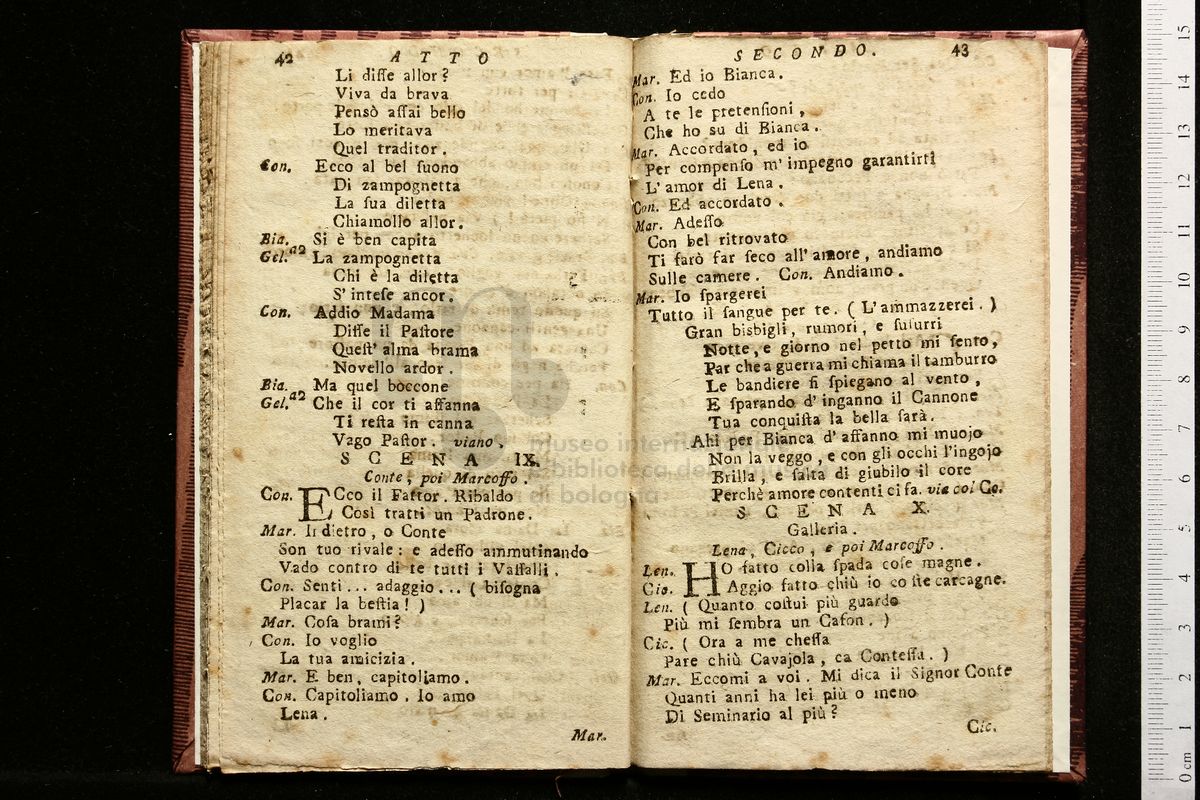 42 ATTO
Li disse allor?
Viva da brava
Pensò assai bello
Lo meritava
Quel traditor.
Con. Ecco al bel suono
Di zampognetta
La sua diletta
Chiamollo allor.
Bia. Si è ben capita
Gel. a2 La zampognetta
Chi è la diletta
S' intese ancor.
Con. Addio Madama
Disse il Pastore
Quest' alma brama
Novello ardor.
Bia. Ma quel boccone
Gel. a2 Che il cor ti affanna
Ti resta in canna
Vago Pastor. viano.
SCENA IX.
Conte, poi Marcoffo.
Con. ECco il Fattor. Ribaldo
Così tratti un Padrone.
Mar. Indietro, o Conte
Son tuo rivale: e adesso ammutinando
Vado contro di te tutti i Vassalli.
Con. Senti... adaggio... ( bisogna
Placar la bestia! )
Mar. Cosa brami?
Con. Io voglio
La tua amicizia.
Mar. E ben, capitoliamo.
Con. Capitoliamo. Io amo
Lena.
Mar.
SECONDO. 43
Mar. Ed io Bianca.
Con. Io cedo
A te le pretensioni,
Che ho su di Bianca.
Mar. Accordato, ed io
Per compenso m' impegno garantirti
L' amor di Lena.
Con. Ed accordato.
Mar. Adesso
Con bel ritrovato
Ti farò far seco all' amore, andiamo
Sulle camere. Con. Andiamo.
Mar. Io spargerei
Tutto il sangue per te. ( L' ammazzerei. )
Gran bisbigli, rumori, e susurri
Notte, e giorno nel petto mi sento,
Par che a guerra mi chiama il tamburro
Le bandiere si spiegano al vento,
E sparando d' inganno il Cannone
Tua conquista la bella sarà.
Ahi per Bianca d' affanno mi muojo
Non la veggo, e con gli occhi l'ingojo
Brilla, e salta di giubilo il core
Perchè amore contenti ci fa. via col Co.
SCENA X.
Galleria.
Lena, Cicco, e poi Marcoffo.
Len. HO fatto colla spada cose magne.
Cic. Aggio fatto chiù io co ste carcagne.
Len. ( Quanto costui più guardo
Più mi sembra un Cafon. )
Cic. ( Ora a me chessa
Pare chiù Cavajola, ca Contessa. )
Mar. Eccomi a voi. Mi dica il Signor Conte
Quanti anni ha lei più o meno
Di Seminario al più?
Cic.